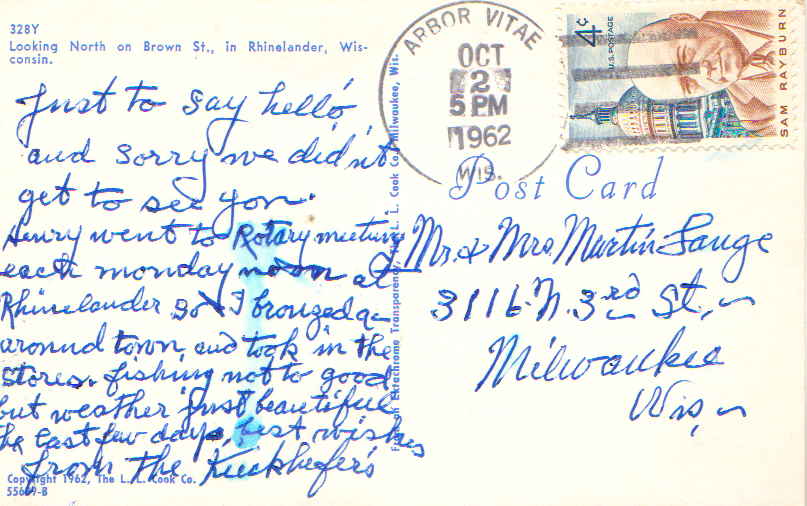 328Y
Looking North on Brown St., in Rhinelander, Wis-
consin.
Just to say hello,
and sorry we didn't
get to see you.
Henry went to Rotary meeting
each monday noon at
Rhinelander so I browzed a-
around town, and took in the
stores. fishing not to good
but weather just beautiful
he last few days, best wishes
from the Kieckhefer's
Copyright 1962, The L. L. Cook Co.
55669-B
from an Ektachrome Transparency, The L. L. Cook Co., Milwaukee, Wis.
ARBOR VITAE
OCT
2
5 PM
1962
WIS.
4¢
U.S. POSTAGE
SAM RAYBURN
Post Card
Mr. & Mrs Martin Lange
3116 N. 3rd St,
Milwaukee
Wis,